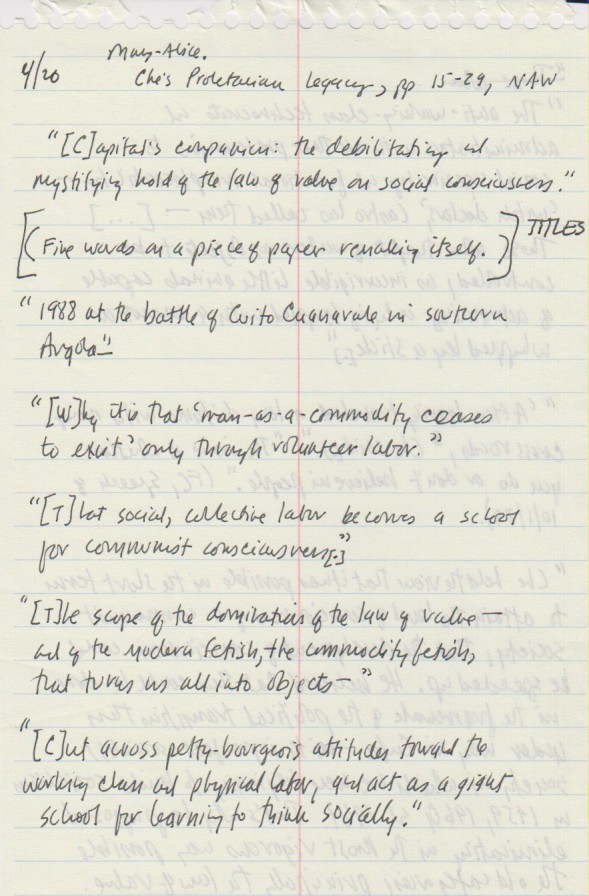 Mary-Alice.
4/20 Che's Proletarian Legacy, pp 15-29, NAW
"[C]apital's companion: the debilitating and
mystifying hold of the law of value on social consciousness."
[(Five words on a piece of paper remaking itself.)] TITLES
"1988 at the battle of Cuito Cuanavale in southern
Angola"
"[W]hy it is that 'man-as-a-commodity ceases
to exist' only through volunteer labor."
"[T]hat social, collective labor becomes a school
for communist consciousness[.]"
"[T]he scope of the domination of the law of value—
and of the modern fetish, the commodity fetish,
that turns us all into objects—"
"[C]ut across petty-bourgeois attitudes toward the
working class and physical labor, and act as a giant
school for learning to think socially."